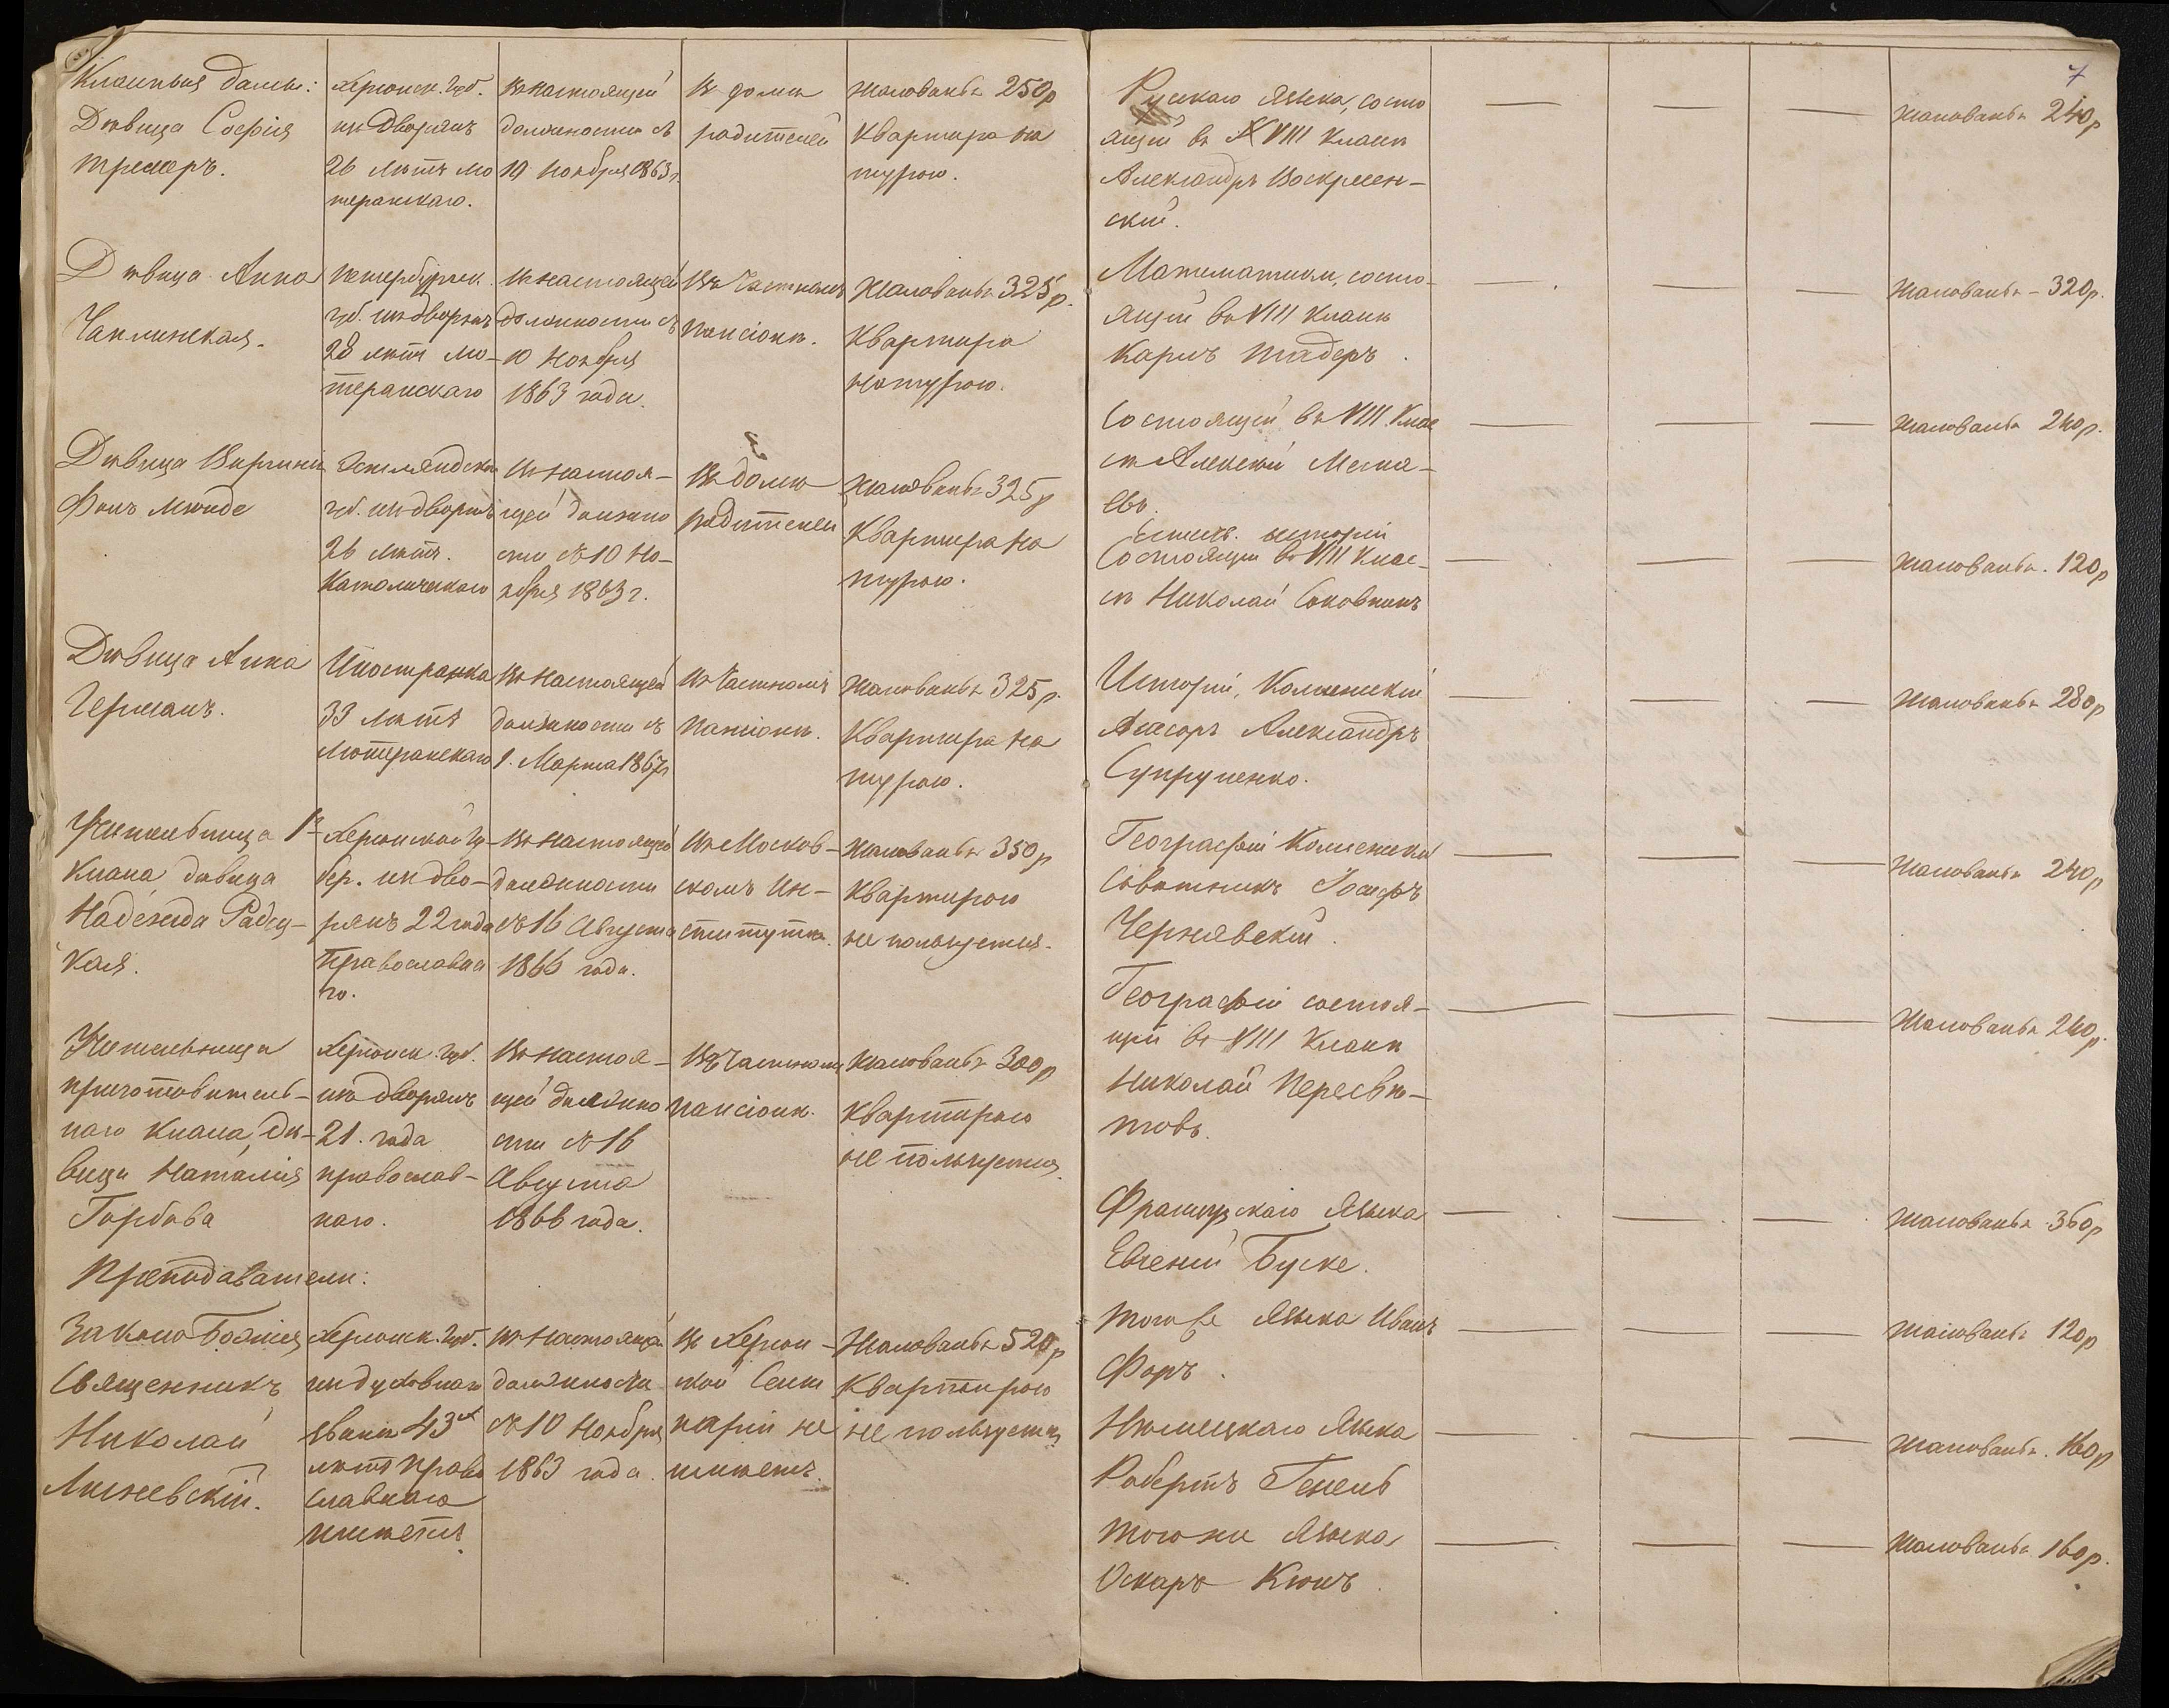 Классныя дамы:
Дѣвица Софія
Тремеръ.
Херсонск. губ.
из дворянъ
26 лѣтъ лю
теранскаго.
Въ настоящей
должности съ
10 Ноября 1863 г.
Въ домѣ
родителей
Жалованья 250 р
Квартира на
турою.
Дѣвица Анна
Чаплинская.
Петербургск.
губ. изъ дворянъ
28 лѣтъ лю-
теранскаго
Въ настоящей
должности съ
10 Ноября
1863 года.
Въ частномъ
пансіонѣ.
Жалованья 325 р.
Квартира
натурою.
Дѣвица Виргинія
Фонъ Люнде
Эстляндской
губ. изъ дворянъ
26 лѣтъ.
Католическаго
Въ настоя-
щей должно
сти съ 10 Но-
ября 1863 г.
Въ домѣ
родителей
Жалованья 325 р
Квартира на
турою.
Дѣвица Анна
Германъ.
Иностранка
33 лѣтъ
Лютеранскаго
Въ настоящей
должности съ
1. Марта 1867 г
Въ частномъ
пансіонѣ.
Жалованья 325 р.
Квартира на
турою.
Учительница 1го
Класа дѣвица
Надежда Радец-
кая.
Херсонской гу-
бер. из дво-
рянъ 22 года
Православна
го.
Въ настоящей
должности
съ 16 Августа
1866 года.
Въ Москов-
скомъ Ин-
ститутѣ.
Жалованья 350 р
Квартирою
не пользуется.
Учительница
приготовитель-
наго Класа, Дѣ-
вица Наталія
Горбова
Херсонск. губ.
изъ дворянъ
21. года
православ-
наго.
Въ настоя-
щей должно
сти съ 16
Августа
1866 года.
Въ частномъ
пансіонѣ.
Жалованья 300 р
Квартирою
не пользуется.
Преподаватели:
Закона Божія
Священникъ
Николай
Лисневскій.
Херсонск. губ.
из духовнаго
званія 43 хъ
лѣтъ Право
славнаго
имѣетъ
Въ настоящей
должности
съ 10 Ноября
1863 года.
Въ Херсон-
ской Семи
наріи не
имѣетъ.
Жалованья 520 р
Квартирою
не пользуется
7
Рускаго Языка, состо
ящій въ VIII Классѣ
Александръ Воскресен-
скій.
Жалованья 240 р
Математики, состо-
ящій въ VIII Классѣ
Карлъ Тадеръ.
Жалованья - 320 р.
Состоящій въ VIII Клас
сѣ Алексѣй Меша-
евъ.
Жалованья 240 р.
Естеств. исторіи
Состоящій въ VIII Клас-
сѣ Николай Соковнинъ
Жалованья. 120 р
Исторіи, Колежскій
Асесоръ Александръ
Супруненко.
Жалованья 280 р
Географіи Колежскій
Совѣтникъ Іосифъ
Чернявскій.
Жалованья 240 р
Географіи состоя-
щій въ VIII Классѣ
Николай Пересвѣ-
товъ.
Жалованья 240 р.
Французскаго Языка
Евгеній Буске.
Жалованья 360 р
Того же Языка Иванъ
Форъ.
Жалованья 120 р
Нѣмецкаго Языка
Робертъ Генель
Жалованья. 160 р
Того же Языка
Оскаръ Кюнъ.
Жалованья 160 р.